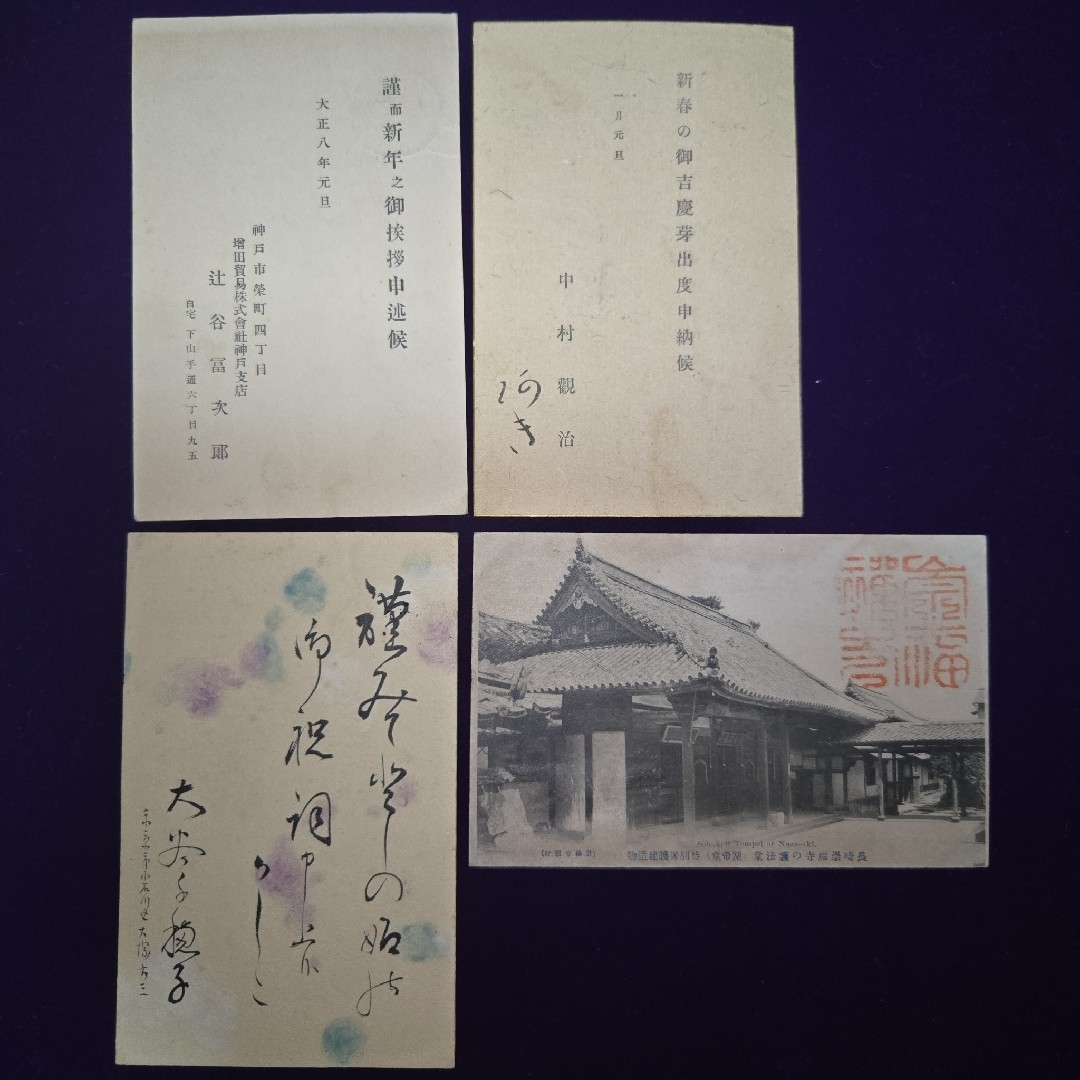 謹而新年之御挨拶申述候
大正八年元旦
神戸市榮町四丁目
増田貿易株式會社神戸支店
辻谷冨次郎
自宅 下山手通六丁目九五
新春の御吉慶芽出度申納候
一月元旦
中村觀治
謹みて
としの始
御祝詞申上
かしこ
大谷
子
小石川区大塚
Sohukuji Tempel at Nagasaki.
長崎崇福寺の護法堂(關帝堂)特別保護建造物